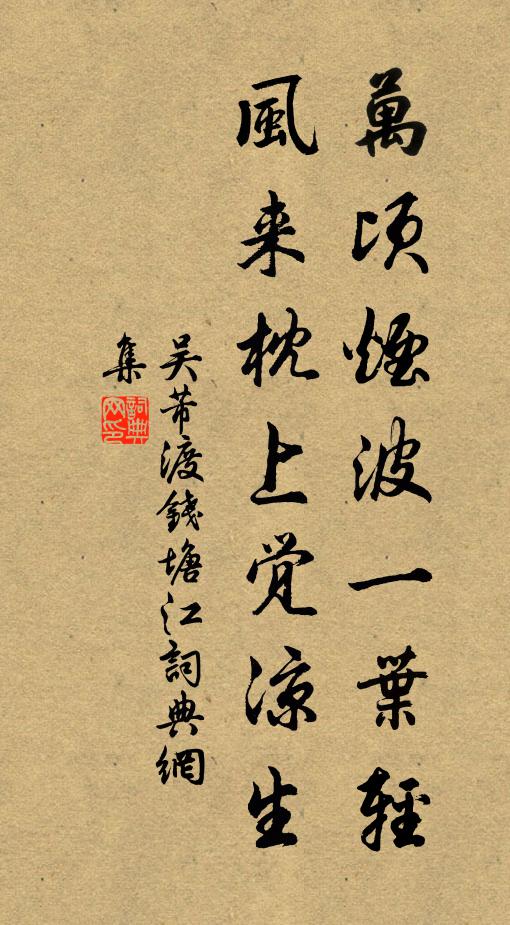 萬頃煙波一葉輕
風来枕上覺涼生
吴芾渡錢塘江詞典網
集
詞典网印